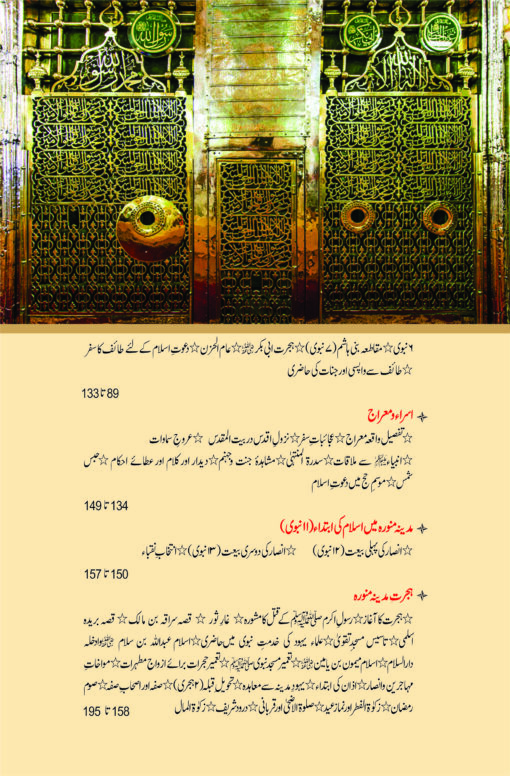 رسول الله
محمد رسول الله
لا اله الا الله
۶ نبوی ☆ مقاطعہ بنی ہاشم (۷ نبوی) ☆ ہجرت ابی بکر ☆ عام الحزن ☆ دعوتِ اسلام کے لئے طائف کا سفر
☆ طائف سے واپسی اور جنات کی حاضری
89 تا 133
اسراء و معراج
☆ تفصیل واقعہ معراج ☆ عجائباتِ سفر ☆ نزولِ اقدس در بیت المقدس ☆ عروجِ سماوات
☆ انبیاء سے ملاقات ☆ سدرۃ المنتہیٰ ☆ مشاہدۂ جنت و جہنم ☆ دیدار اور کلام اور عطائے احکام ☆ حبس
شمس ☆ موسمِ حج میں دعوتِ اسلام
134 تا 149
مدینہ منورہ میں اسلام کی ابتداء (۱۱ نبوی)
☆ انصار کی پہلی بیعت (۱۲ نبوی) ☆ انصار کی دوسری بیعت (۱۳ نبوی) ☆ انتخابِ نقباء
150 تا 157
ہجرت مدینہ منورہ
☆ ہجرت کا آغاز ☆ رسولِ اکرم ﷺ کے قتل کا مشورہ ☆ غارِ ثور ☆ قصہ سراقہ بن مالک ☆ قصہ بریدہ
اسلمی ☆ تاسیس مسجدِ تقویٰ ☆ علماء یہود کی خدمتِ نبوی میں حاضری ☆ اسلام عبداللہ بن سلام واد‌خلہ
دارِ اسلام ☆ اسلام میمون بن یامین ☆ تعمیرِ مسجدِ نبوی ﷺ ☆ تعمیر حجرات برائے ازواجِ مطہرات ☆ مواخاتِ
مہاجرین و انصار ☆ اذان کی ابتداء ☆ یہودِ مدینہ سے معاہدہ ☆ تحویلِ قبلہ (۲ ہجری) ☆ صفہ اور اصحابِ صفہ ☆ صومِ
رمضان ☆ زکوٰۃ الفطر اور نمازِ عید ☆ صلوٰۃ الاضحیٰ اور قربانی ☆ درود شریف ☆ زکوٰۃ المال
158 تا 195